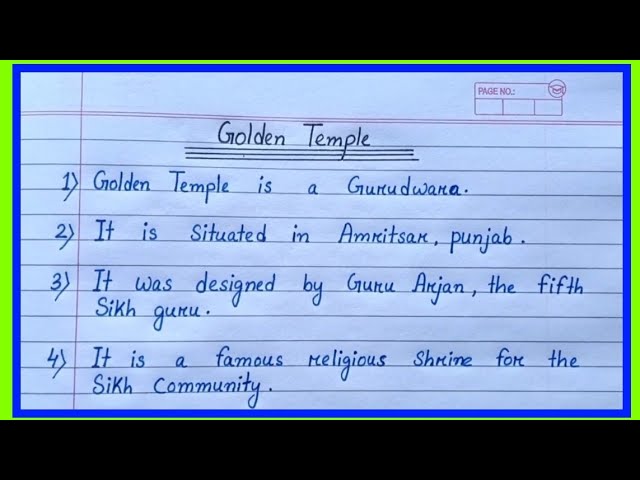 PAGE NO.:
Golden Temple
1) Golden Temple is a Gurudwara.
2) It is situated in Amritsar, punjab.
3) It was designed by Guru Arjan, the fifth
Sikh guru.
4) It is a famous religious shrine for the
Sikh Community.